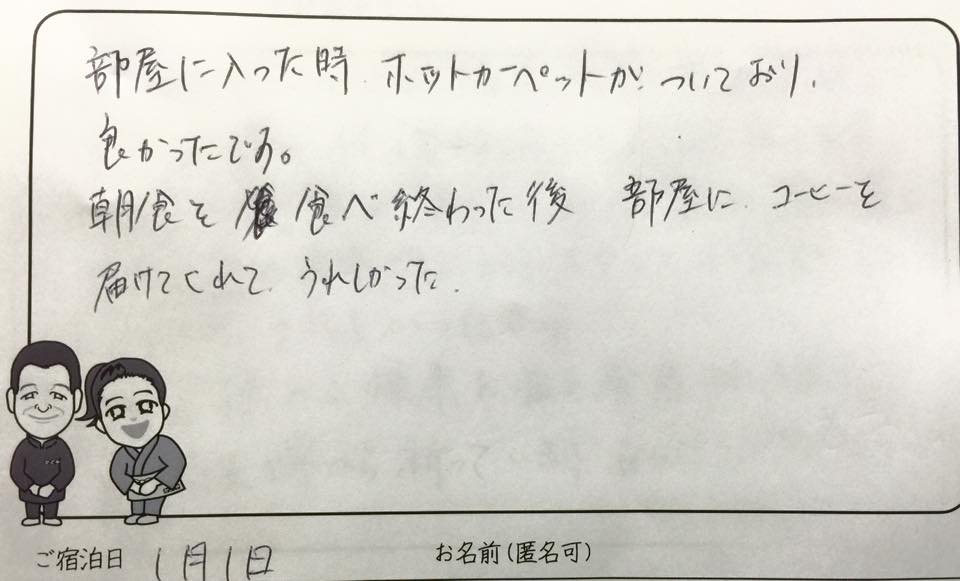 部屋に入った時、ホットカーペットが、ついており、
良かったです。
朝食を 食べ終わった後 部屋に、コーヒーを
届けてくれて、うれしかった。
ご宿泊日 1月1日 お名前(匿名可)